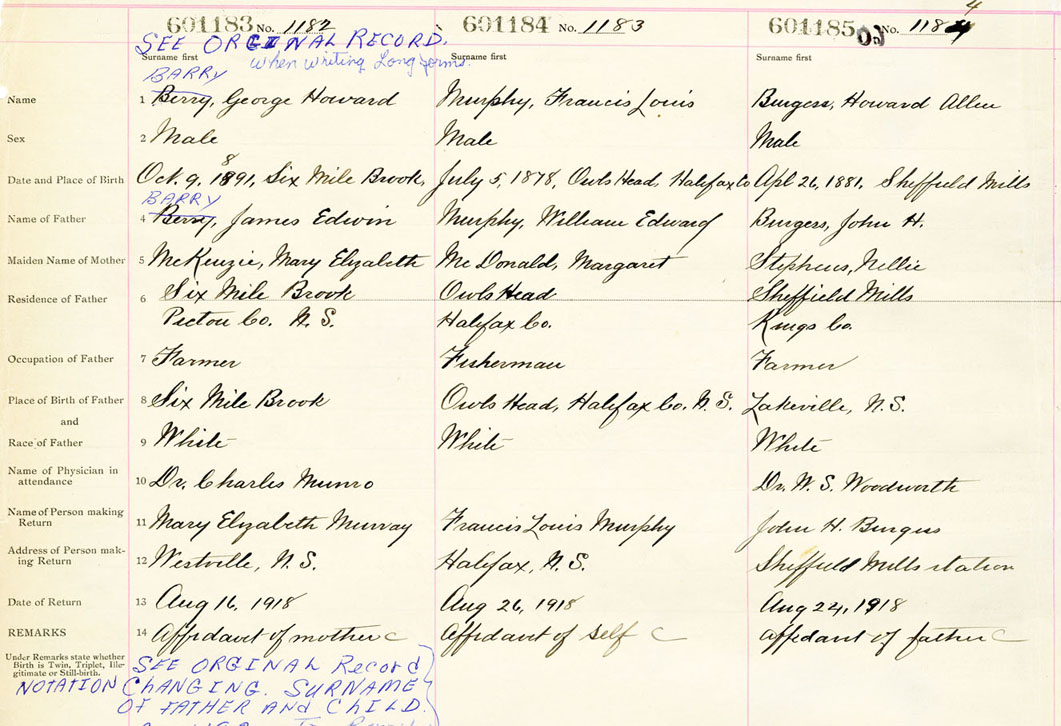 4
601183 No. 1182 601184 No. 1183 601185 No. 1184
SEE ORGINAL RECORD.
when writing Long forms.
Surname first Surname first Surname first
BARRY
Name 1 Berry, George Howard Murphy, Francis Louis Burgess, Howard Allen
Sex 2 Male Male Male
8
Date and Place of Birth 3 Oct. 9, 1891, Six Mile Brook, July 5, 1878, Owls Head, Halifax Co Apl 26, 1881, Sheffield Mills
BARRY
Name of Father 4 Berry, James Edwin Murphy, William Edward Burgess, John H.
Maiden Name of Mother 5 McKenzie, Mary Elizabeth McDonald, Margaret Stephens, Nellie
Residence of Father 6 Six Mile Brook Owls Head Sheffield Mills
Pictou Co. N.S. Halifax Co. Kings Co.
Occupation of Father 7 Farmer Fisherman Farmer
Place of Birth of Father 8 Six Mile Brook Owls Head, Halifax Co. N.S. Lakeville, N.S.
and
Race of Father 9 White White White
Name of Physician in
attendance 10 Dr. Charles Munro Dr. W. S. Woodworth
Name of Person making
Return 11 Mary Elizabeth Murray Francis Louis Murphy John H. Burgess
Address of Person mak-
ing Return 12 Westville, N.S. Halifax, N.S. Sheffield Mills station
Date of Return 13 Aug 16, 1918 Aug 26, 1918 Aug 24, 1918
REMARKS 14 Affidavit of mother C Affidavit of self C Affidavit of father C
Under Remarks state whether
Birth is Twin, Triplet, Ille-
gitimate or Still-birth.
SEE ORGINAL Record
NOTATION CHANGING SURNAME
OF FATHER AND CHILD.